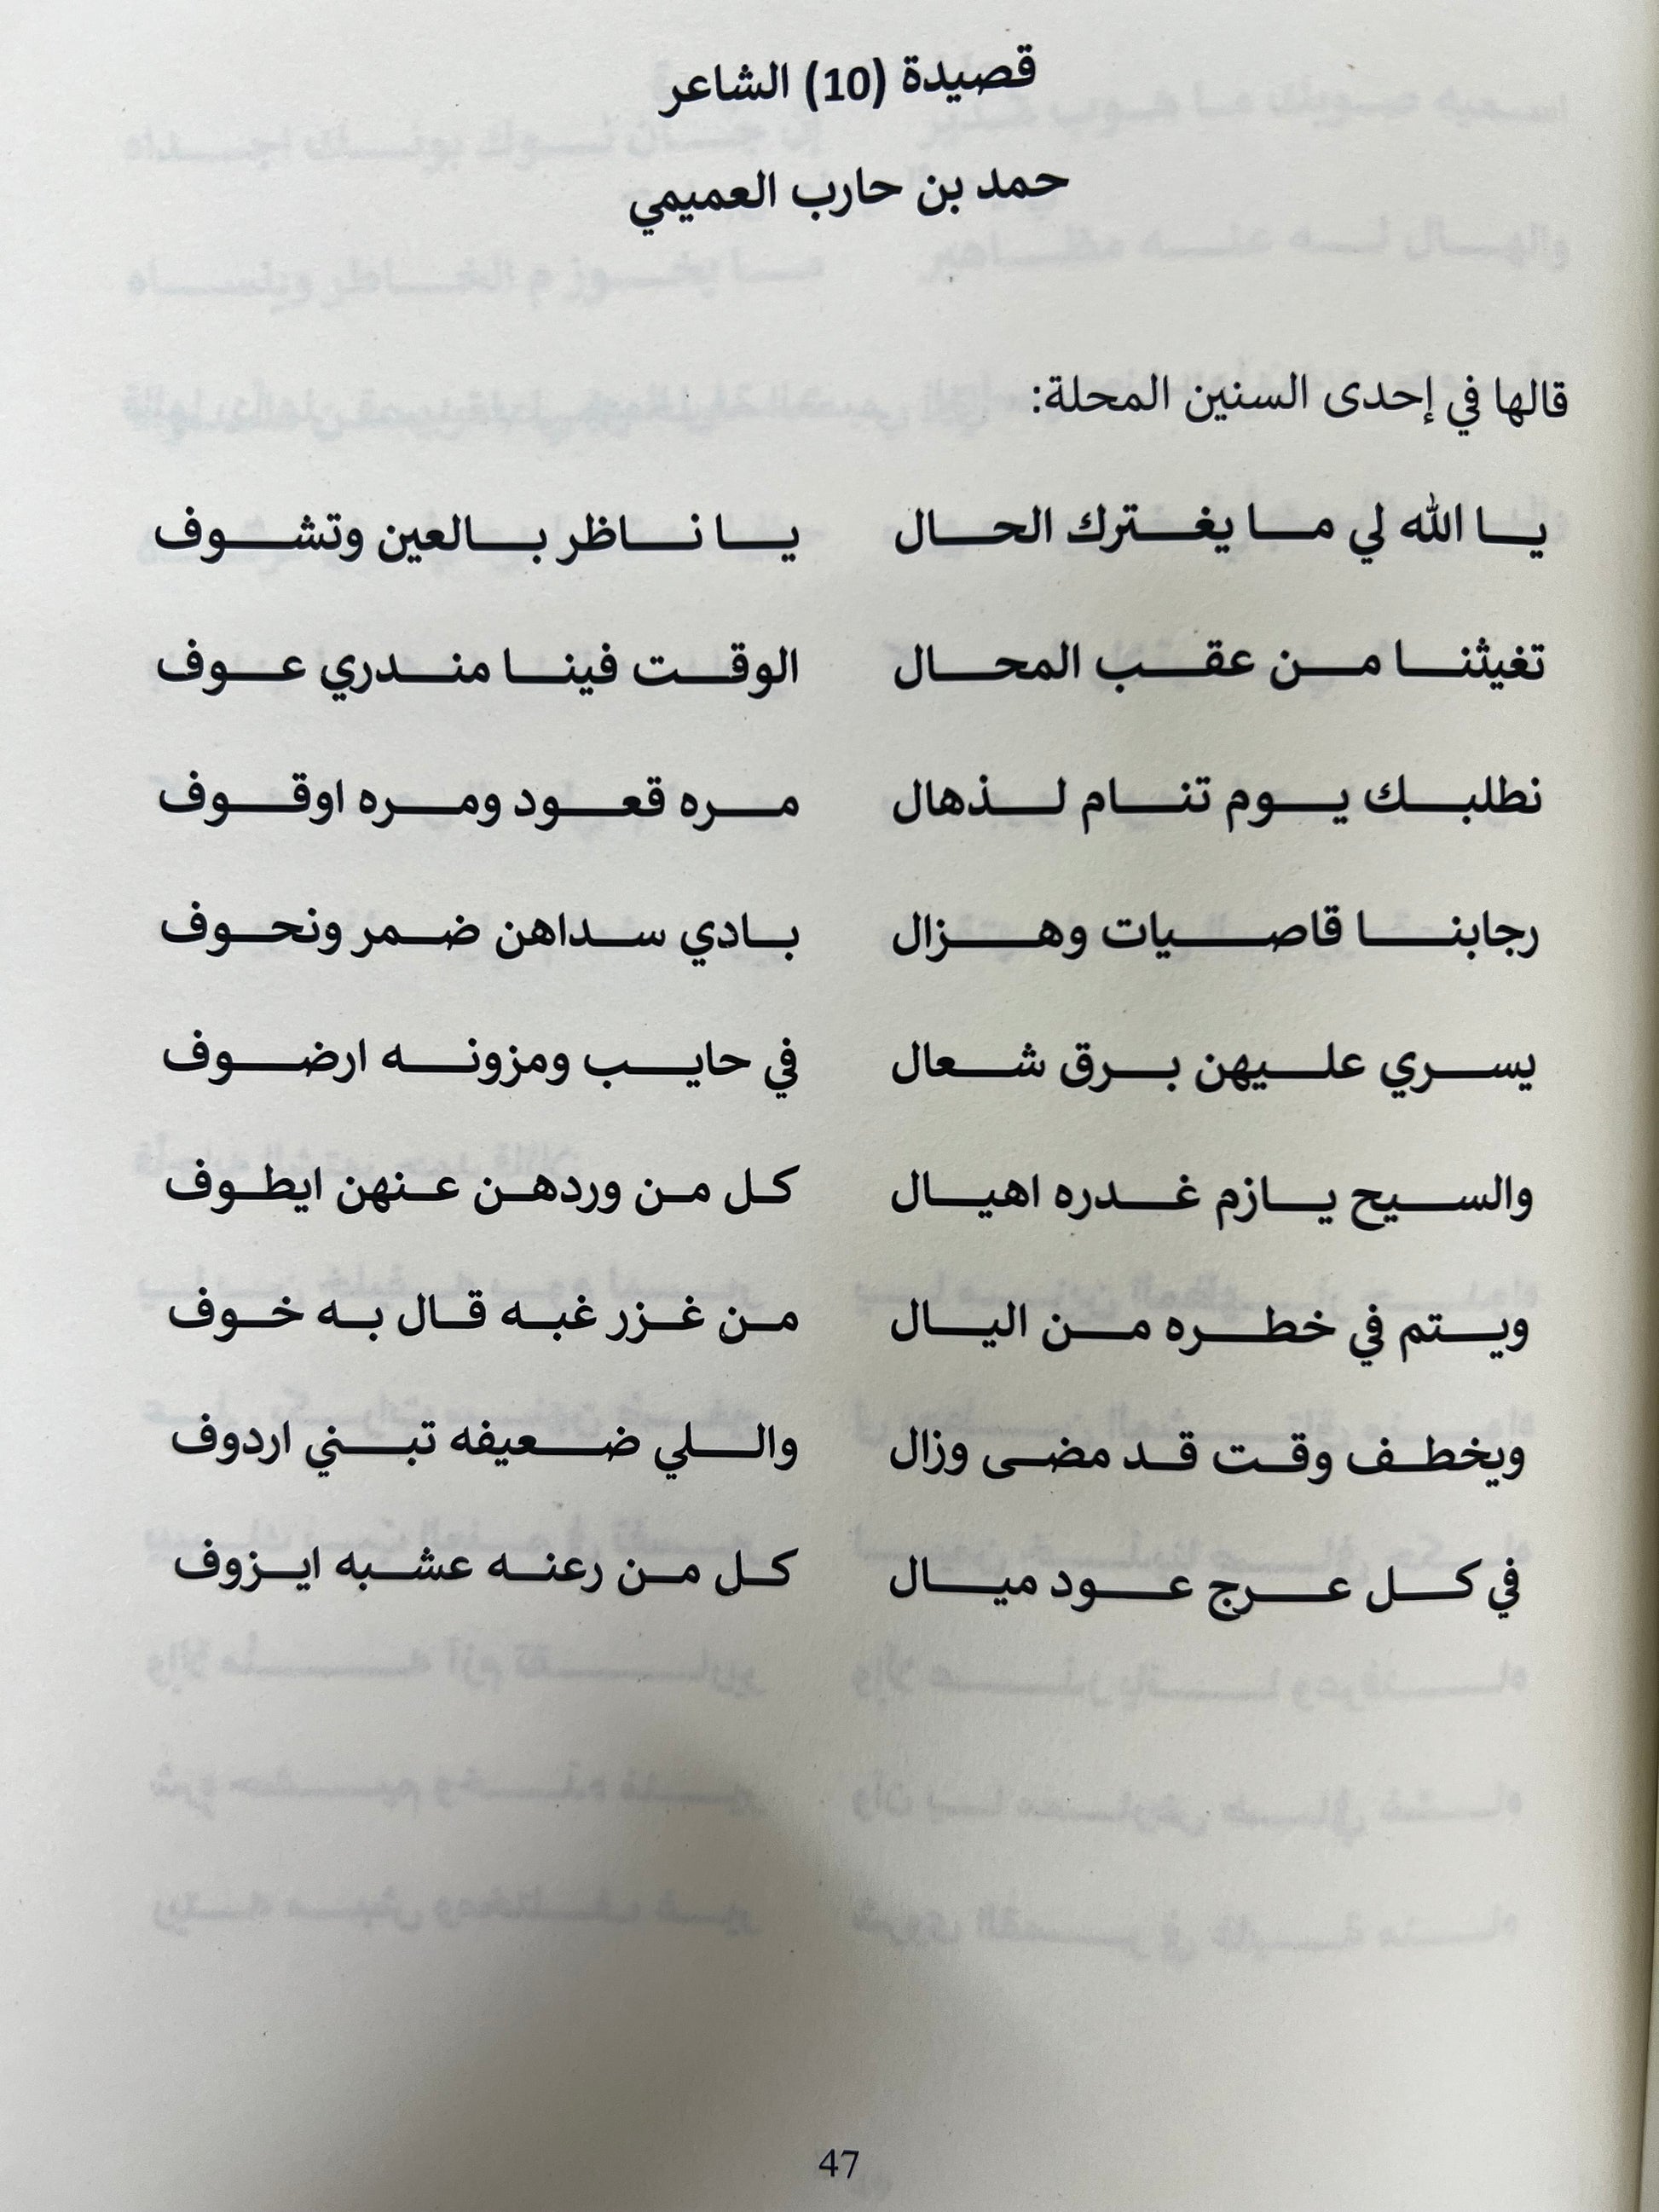 قصيدة (10) الشاعر
حمد بن حارب العميمي
قالها في إحدى السنين المحلة:
يا الله لي ما يغترك الحال يا ناظر بالعين وتشوف
تغيثنا من عقب المحال الوقت فينا مندري عوف
نطلبك يوم تنام لذهال مره قعود ومره اوقوف
رجابنا قاصيات وهزال بادي سداهن ضمر ونحوف
يسري عليهن برق شعال في حايب ومزونه ارضوف
والسيح يازم غدره اهيال كل من وردهن عنهن ايطوف
ويتم في خطره من اليال من غزر غبه قال به خوف
ويخطف وقت قد مضى وزال واللي ضعيفه تبني اردوف
في كل عرج عود ميال كل من رعنه عشبه ايزوف
47